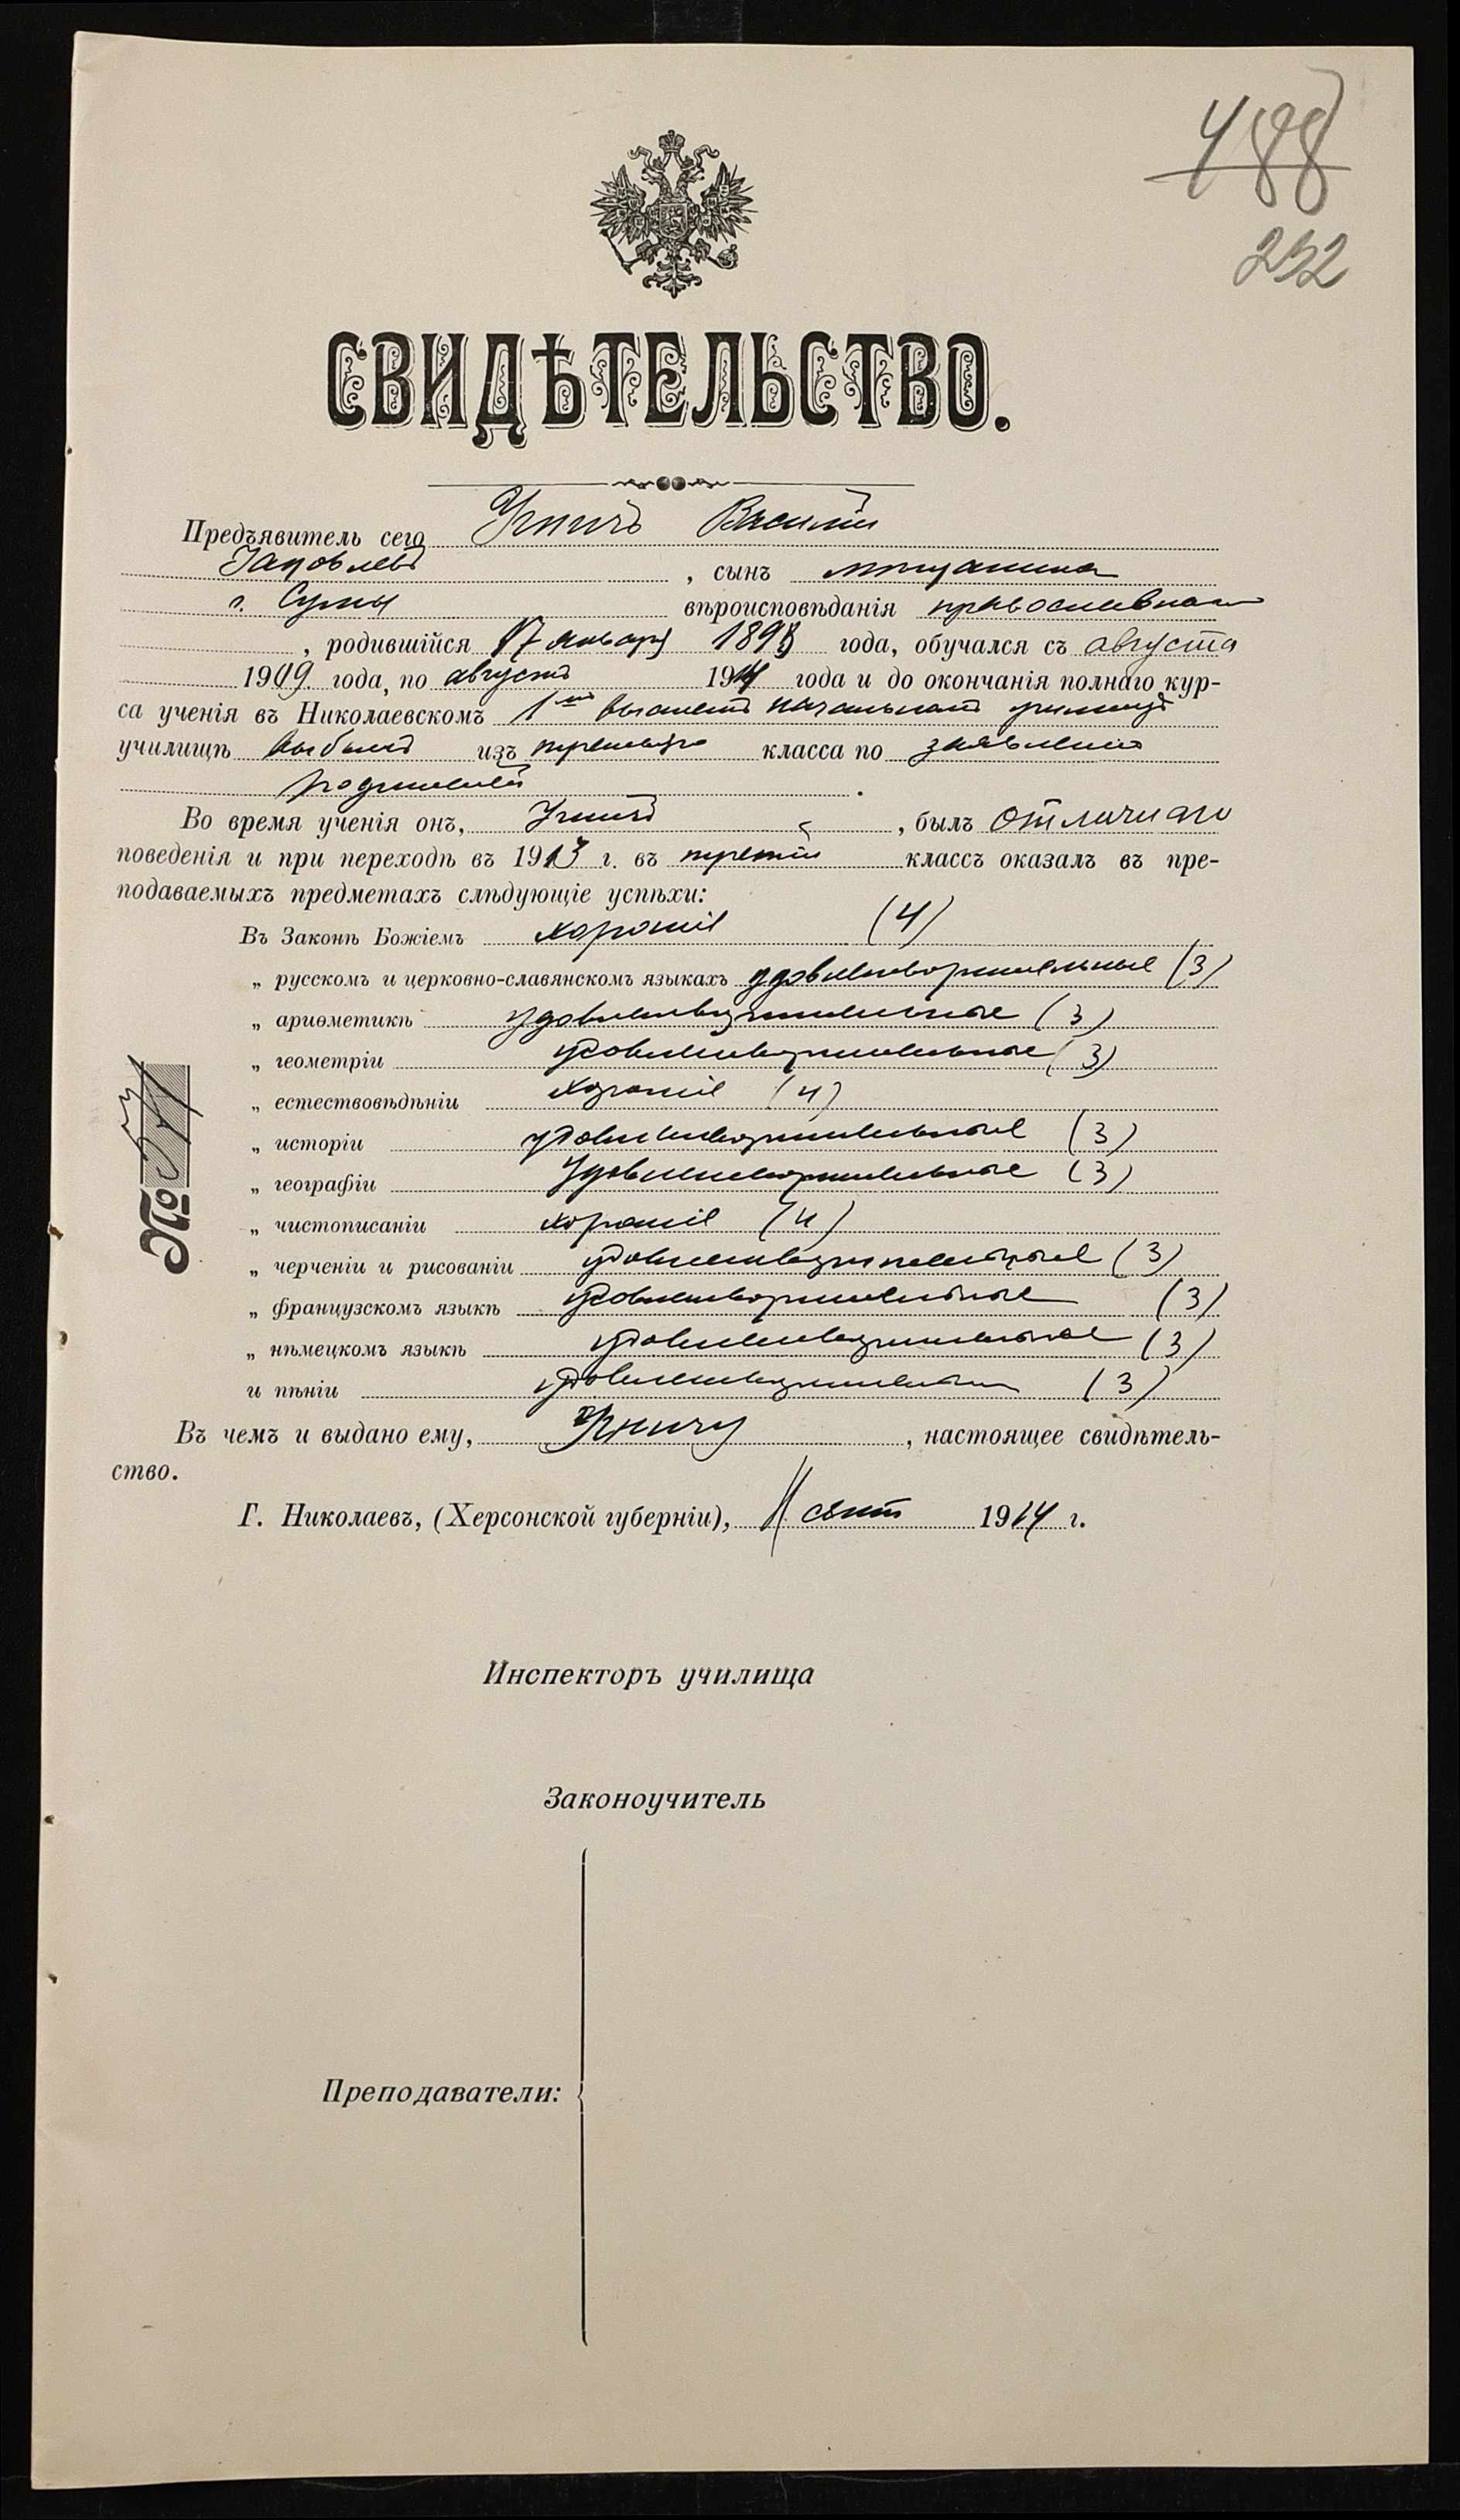 488
252
СВИДѢТЕЛЬСТВО.
Предъявитель сего Василій
Яковлевъ, сынъ мѣщанина
г. Сумы вѣроисповѣданія православнаго
, родившійся 17 января 1898 года, обучался съ августа
1909 года, по августъ 1914 года и до окончанія полнаго кур-
са ученія въ Николаевскомъ 1мъ высшемъ начальномъ училищѣ
училищѣ выбылъ изъ третьяго класса по заявленію
родителей.
Во время ученія онъ, , былъ отличнаго
поведенія и при переходѣ въ 1913 г. въ третій классъ оказалъ въ пре-
подаваемыхъ предметахъ слѣдующіе успѣхи:
Въ Законѣ Божіемъ хорошіе (4)
„ русскомъ и церковно-славянскомъ языкахъ удовлетворительные (3)
„ ариѳметикѣ удовлетворительные (3)
„ геометріи удовлетворительные (3)
„ естествовѣдѣніи хорошіе (4)
„ исторіи удовлетворительные (3)
„ географіи удовлетворительные (3)
„ чистописаніи хорошіе (4)
„ черченіи и рисованіи удовлетворительные (3)
„ французскомъ языкѣ удовлетворительные (3)
„ нѣмецкомъ языкѣ удовлетворительные (3)
и пѣніи удовлетворительные (3)
Въ чемъ и выдано ему, , настоящее свидѣтель-
ство.
Г. Николаевъ, (Херсонской губерніи), 11 сент 1914 г.
№
Инспекторъ училища
Законоучитель
Преподаватели: